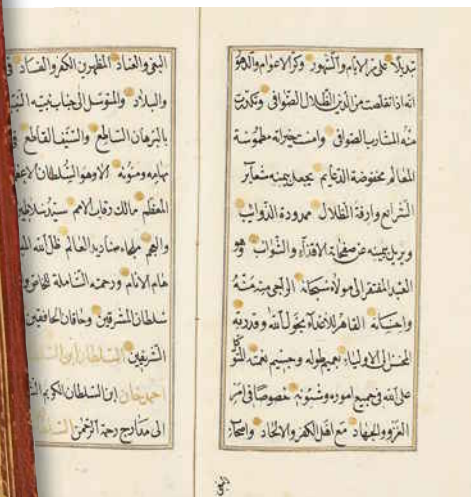 تبديلا على مر الايام والشهور وكر الاعوام والدهور
انه اذا تقلصت من الدين الظلال الضوافى وتكدرت
منه المشارب الصوافى وامست جيرانه مطموسة
المعالم مخفوضة الدعايم يجعل بيمنه شعاير
الشرايع وارفة الظلال ممدودة الذوايب
ويزيل بيمينه عن صفحاته الاقذاء والشوايب وهو
العبد المفتقر الى مولاه سبحانه الراجى منه منه
واحسانه القاهر للاعداء بحول الله وقدرته
المحسن الى الاولياء بعميم طوله وجسيم نعمته المتوكل
على الله فى جميع اموره وشئونه خصوصا فى امر
الغزو والجهاد مع اهل الكفر والالحاد واصحاب
البغى
البغى والعناد المظهرين الكفر والفساد فى
والبلاد والمتوسل الى جناب نبيه
بالبرهان الساطع والسيف القاطع فى
مهامه ومئونه الا وهو السلطان الاعظم
المعظم مالك رقاب الامم سيد سلاطين
والعجم صناديد العالم ظل الله
هام الانام ورحمته الشاملة للخاص
سلطان المشرقين وخاقان الخافقين
الشريفين السلطان ابن السلطان
احمد خان ابن السلطان الكريم
الى مدارج رحمة الرحمن السلطان